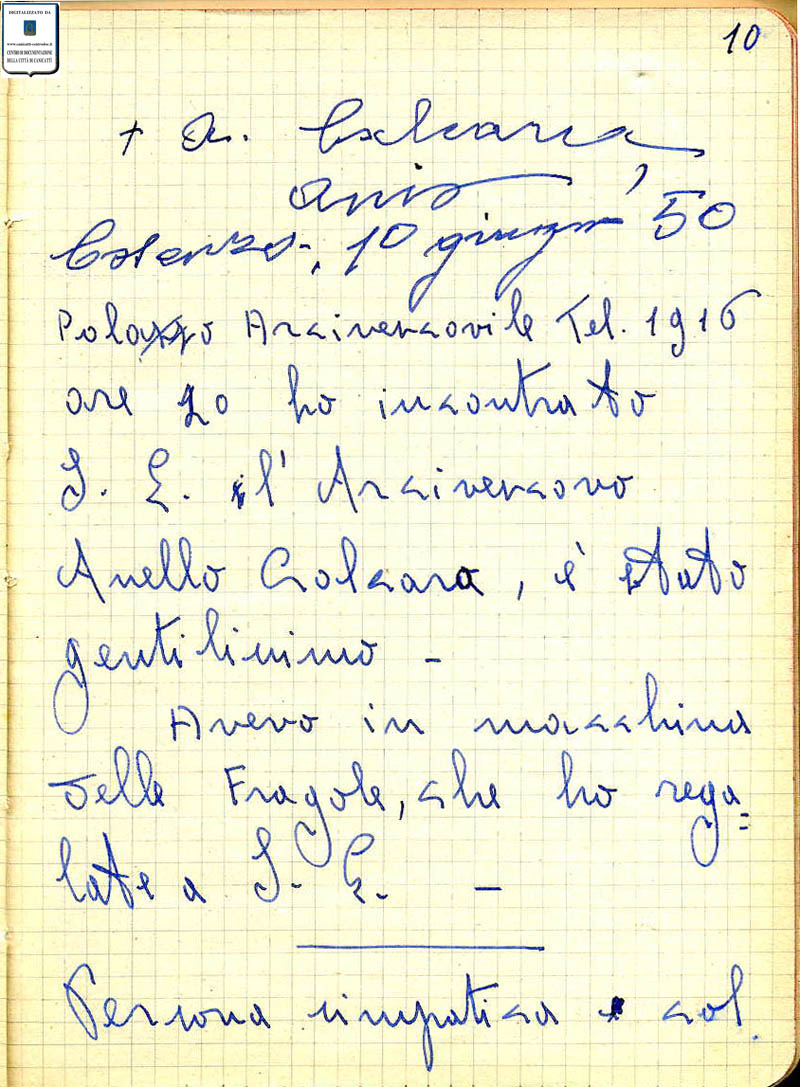 DIGITALIZZATO DA
www.canicatti-centrodoc.it
CENTRO DI DOCUMENTAZIONE
DELLA CITTÀ DI CANICATTÌ
10
+ A. Calcara,
Cosenza, 10 giugno 50
Palazzo Arcivescovile Tel. 1916
ore 20 ho incontrato
S. E. l'Arcivescovo
Anello Calcara, è stato
gentilissimo -
Avevo in macchina
delle Fragole, che ho rega=
late a S. E. -
Persona simpatica e col.